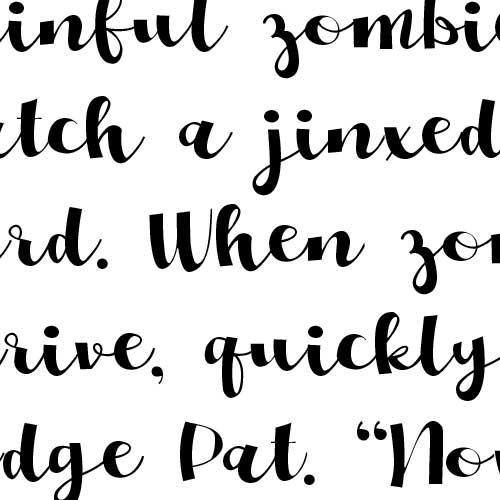 inful zombie
atch a jinxed
ard. When zom
rive, quickly
udge Pat. “Now